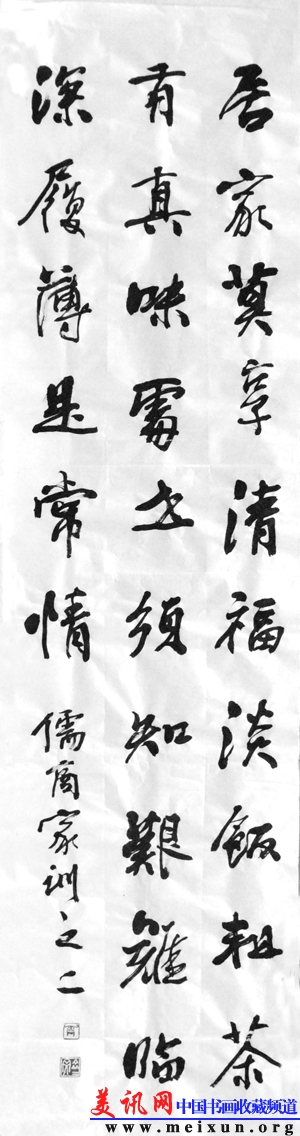 居家莫享清福淡飯粗茶
有真味處世須知艱難臨
深履薄是常情
儒商家训之二
美讯网中国书画收藏频道
www.meixun.org